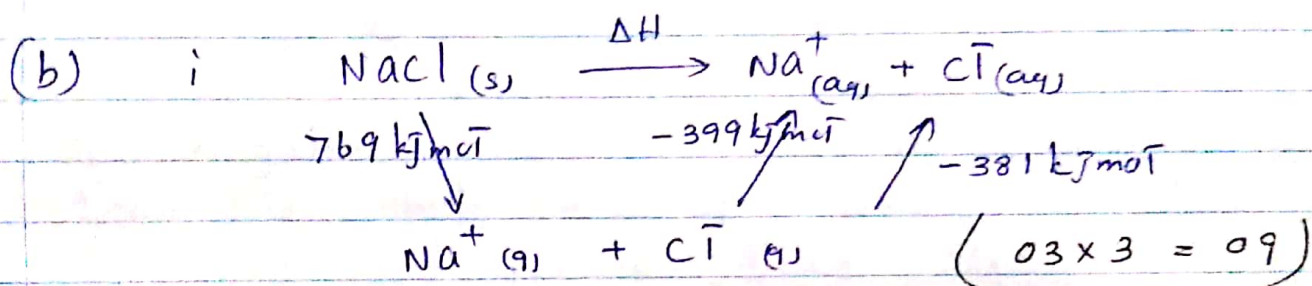 (b) i NaCl (s) ΔH → Na⁺ (aq) + Cl⁻ (aq)
769 kJ mol⁻ -399 kJ mol⁻ -381 kJ mol⁻
Na⁺ (g) + Cl⁻ (g) (03 x 3 = 09)